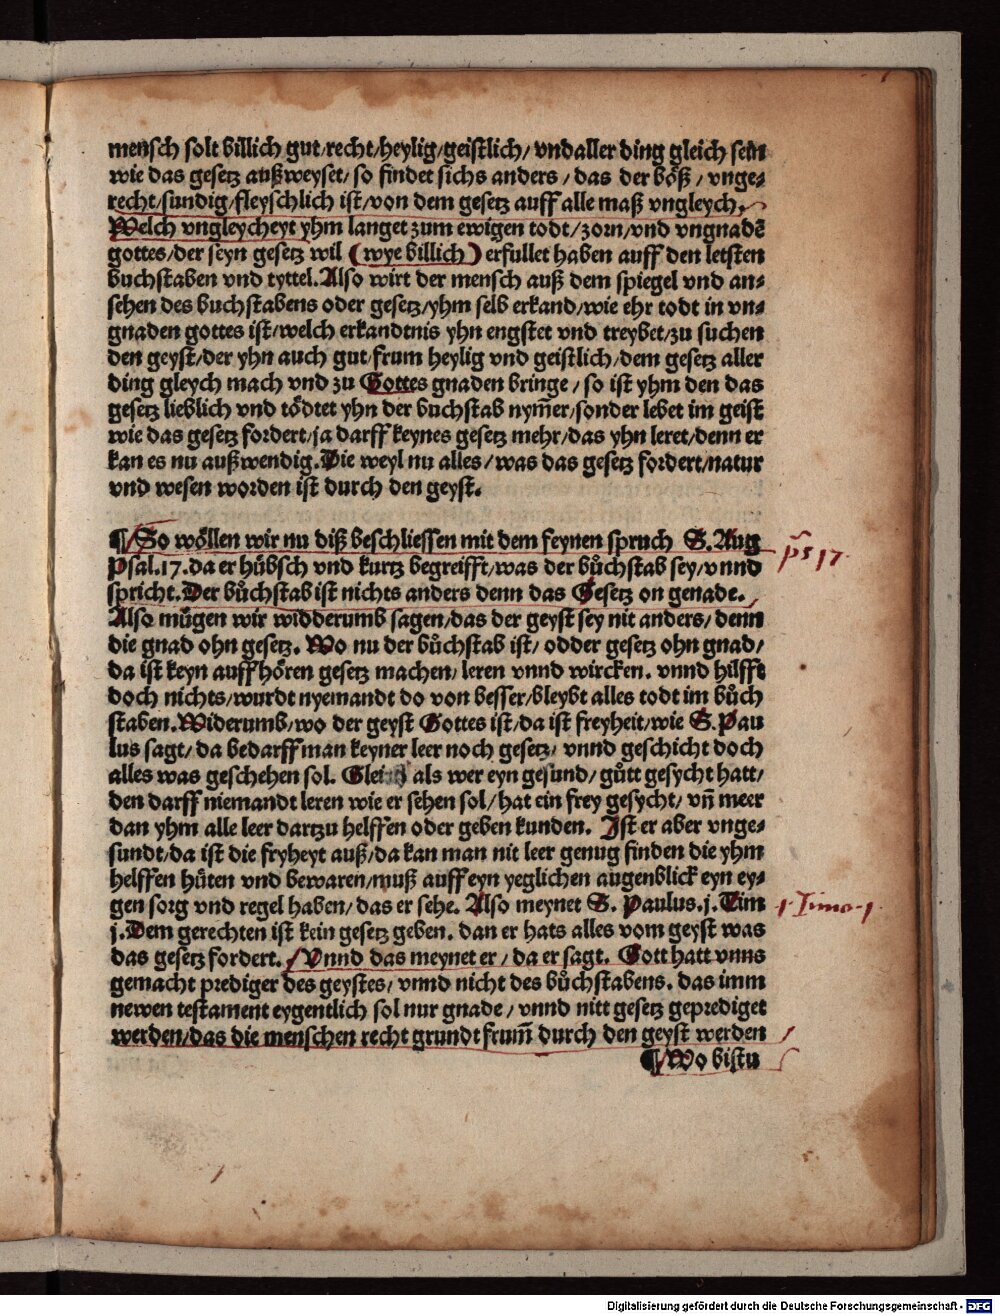 mensch solt billich gut/recht/heylig/geistlich/ vnd aller ding gleich sein
wie das gesetz außweyset/ so findet sichs anders / das der böß / vnge⸗
recht/sundig/fleyschlich ist/von dem gesetz auff alle maß vngleych.
Welch vngleycheyt yhm langet zum ewigen todt/zorn/vnd vngnadē
gottes/der seyn gesetz wil (wye billich) erfullet haben auff den letsten
buchstaben vnd tyttel. Also wirt der mensch auß dem spiegel vnd an⸗
sehen des buchstabens oder gesetz/yhm selb erkand/wie ehr todt in vn⸗
gnaden gottes ist/welch erkandtnis yhn engstet vnd treybet/zu suchen
den geyst/der yhn auch gut/frum heylig vnd geistlich/dem gesetz aller
ding gleych mach vnd zu Gottes gnaden bringe / so ist yhm den das
gesetz lieblich vnd tödtet yhn der buchstab nym̄er/sonder lebet im geist
wie das gesetz fordert/ja darff keynes gesetz mehr/das yhn leret/denn er
kan es nu außwendig. Die weyl nu alles/was das gesetz fordert/natur
vnd wesen worden ist durch den geyst.
¶ So wöllen wir nu diß beschliessen mit dem feynen spruch S. Aug
Psal.17. da er hübsch vnd kurtz begreifft/was der bůchstab sey/vnnd
spricht. Der bůchstab ist nichts anders denn das Gesetz on genade.
ps 17.
Also mügen wir widderumb sagen/das der geyst sey nit anders/denn
die gnad ohn gesetz. Wo nu der bůchstab ist/ odder gesetz ohn gnad/
da ist keyn auffhören gesetz machen/leren vnnd wircken. vnnd hilfft
doch nichts/wurdt nyemandt do von besser/bleybt alles todt im bůch
staben. Widerumb/wo der geyst Gottes ist/da ist freyheit/wie S. Pau
lus sagt/da bedarff man keyner leer noch gesetz/ vnnd geschicht doch
alles was geschehen sol. Gleich als wer eyn gesund/gůtt gesycht hatt/
den darff niemandt leren wie er sehen sol/hat ein frey gesycht/ vn̄ meer
dan yhm alle leer dartzu helffen oder geben kunden. Ist er aber vnge⸗
sundt/da ist die fryheyt auß/da kan man nit leer genug finden die yhm
helffen hüten vnd bewaren/muß auff eyn yeglichen augenblick eyn ey⸗
gen sorg vnd regel haben/das er sehe. Also meynet S. Paulus.j. Tim
j. Dem gerechten ist kein gesetz geben. dan er hats alles vom geyst was
das gesetz fordert. Vnnd das meynet er/da er sagt. Gott hatt vnns
gemacht prediger des geystes/ vnnd nicht des bůchstabens. das imm
newen testament eygentlich sol nur gnade/ vnnd nitt gesetz geprediget
werden/das die menschen recht grundt frum̄ durch den geyst werden
¶ Wo bistu
Digitalisierung gefördert durch die Deutsche Forschungsgemeinschaft - DFG